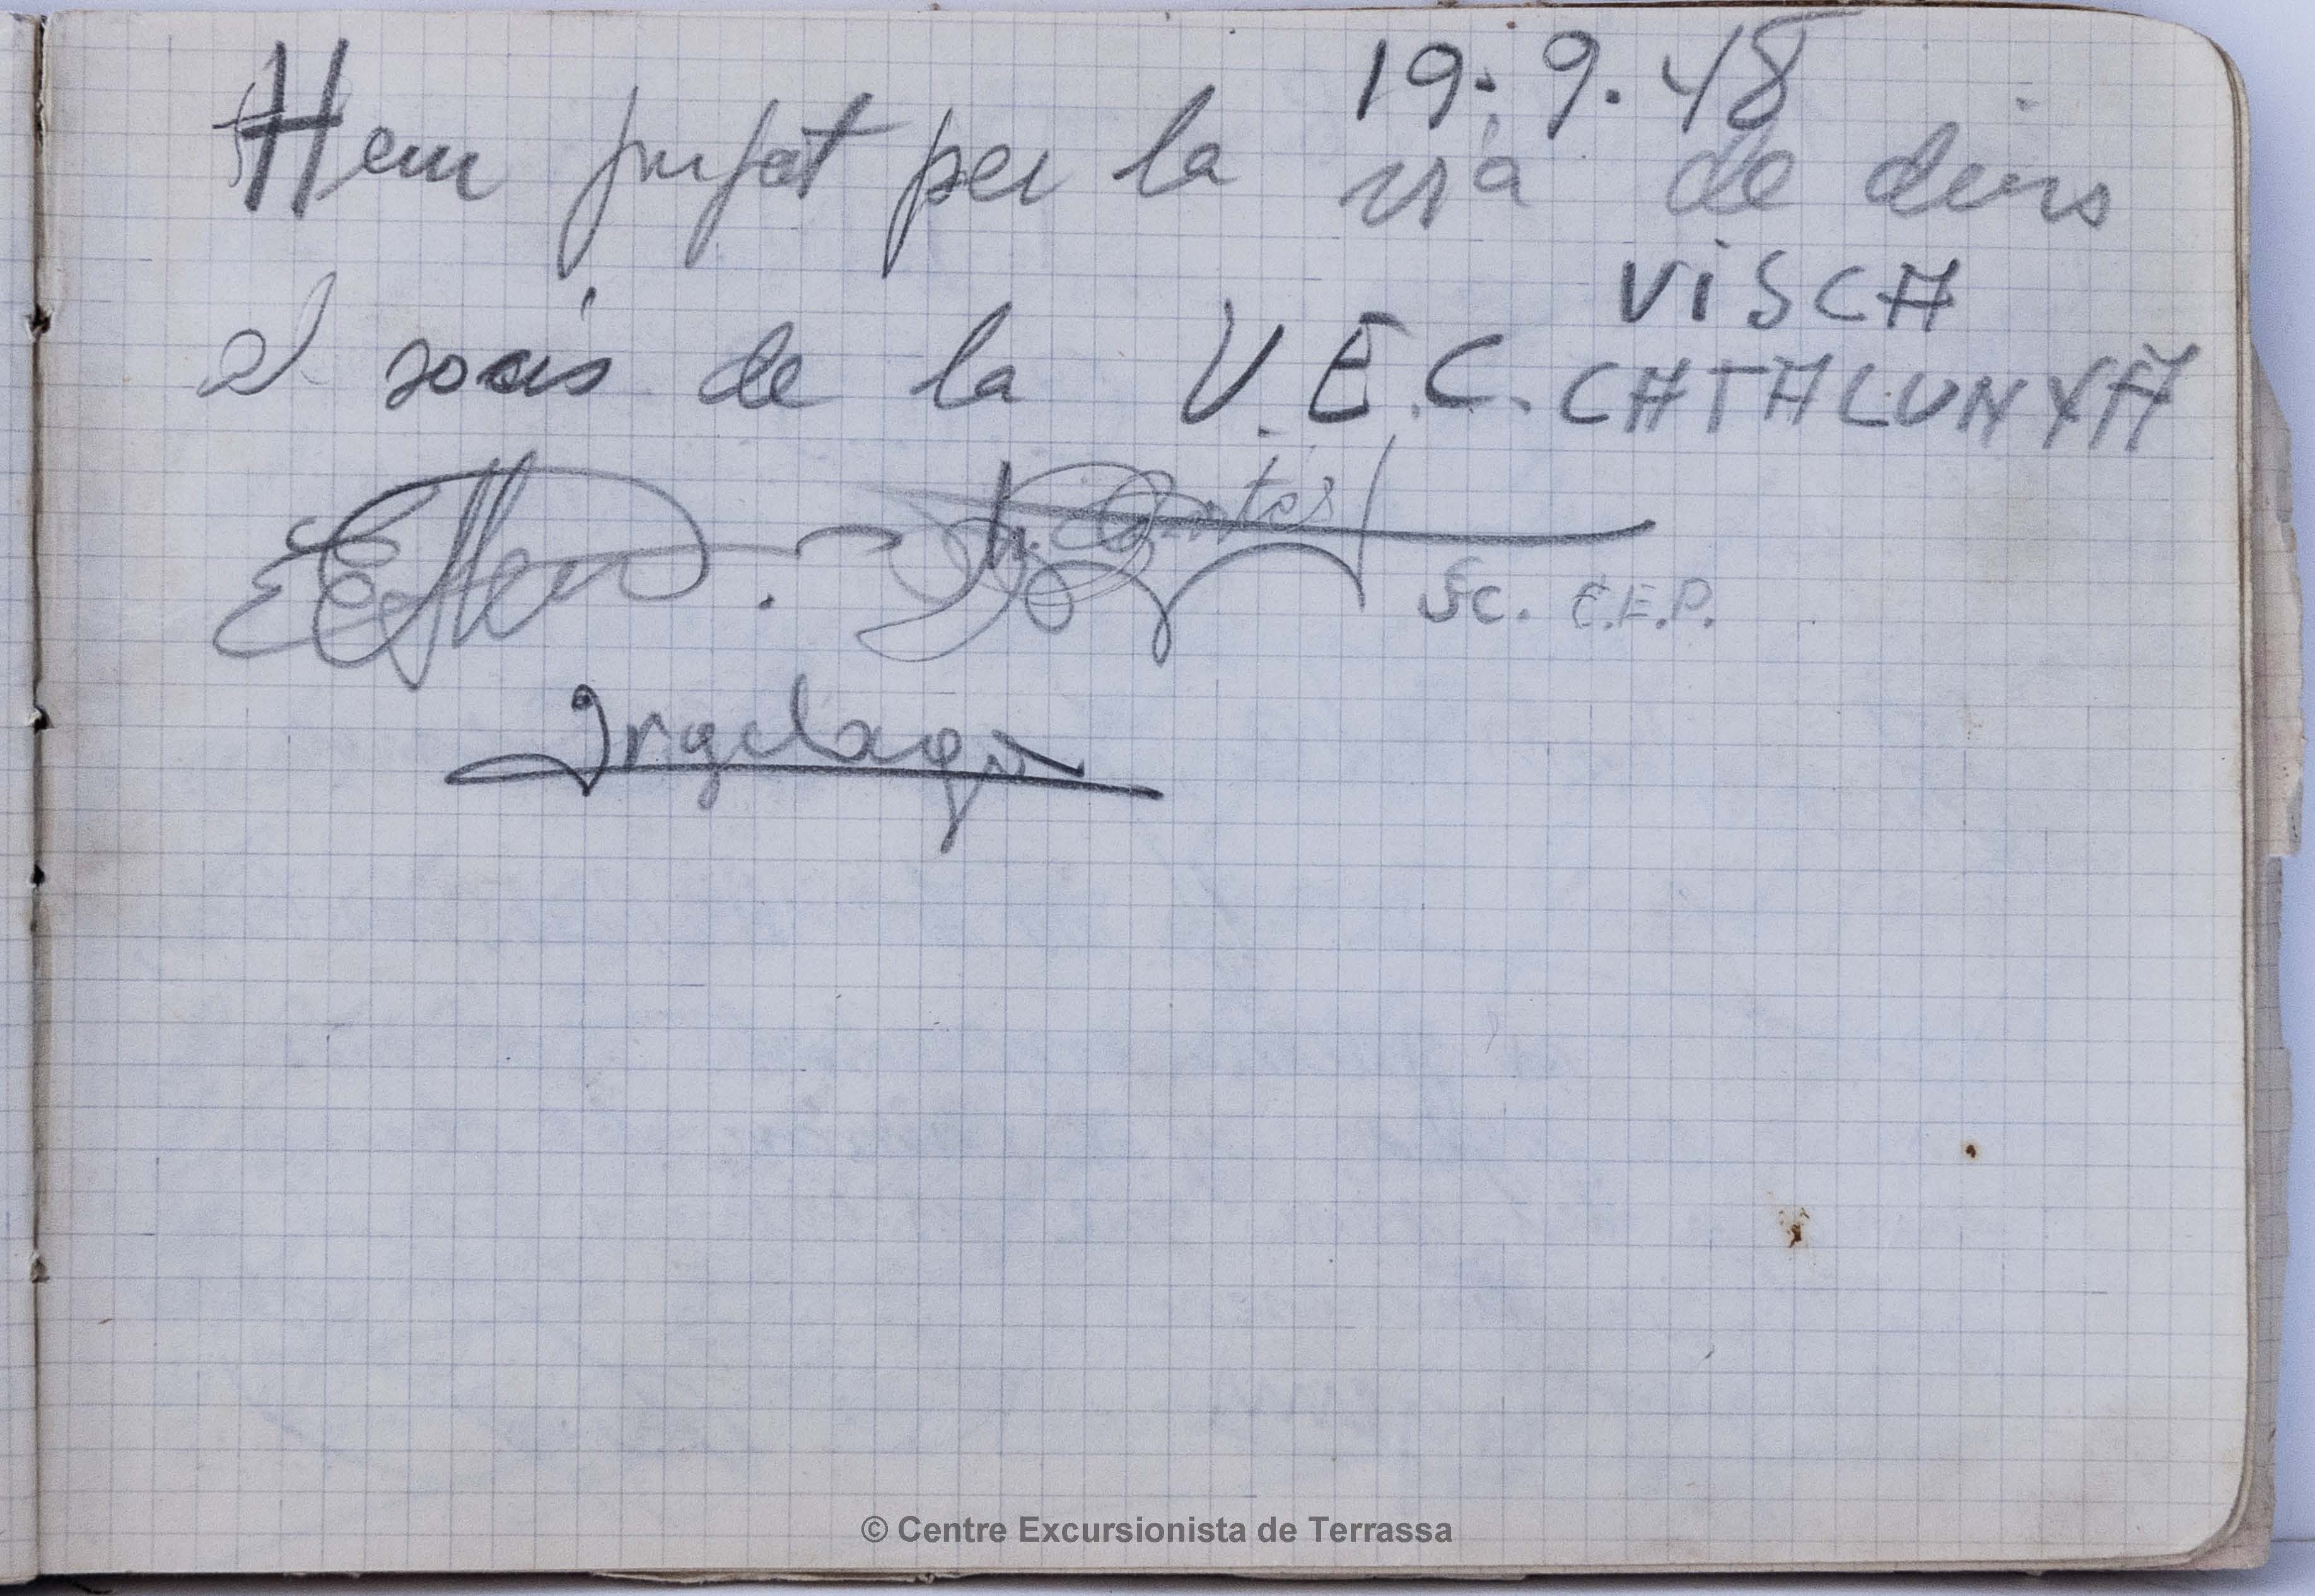 19.9.48
Hem pujat per la via de dins
VISCA
el socis de la U.E.C. CATALUNYA
Sc. C.E.P.
© Centre Excursionista de Terrassa